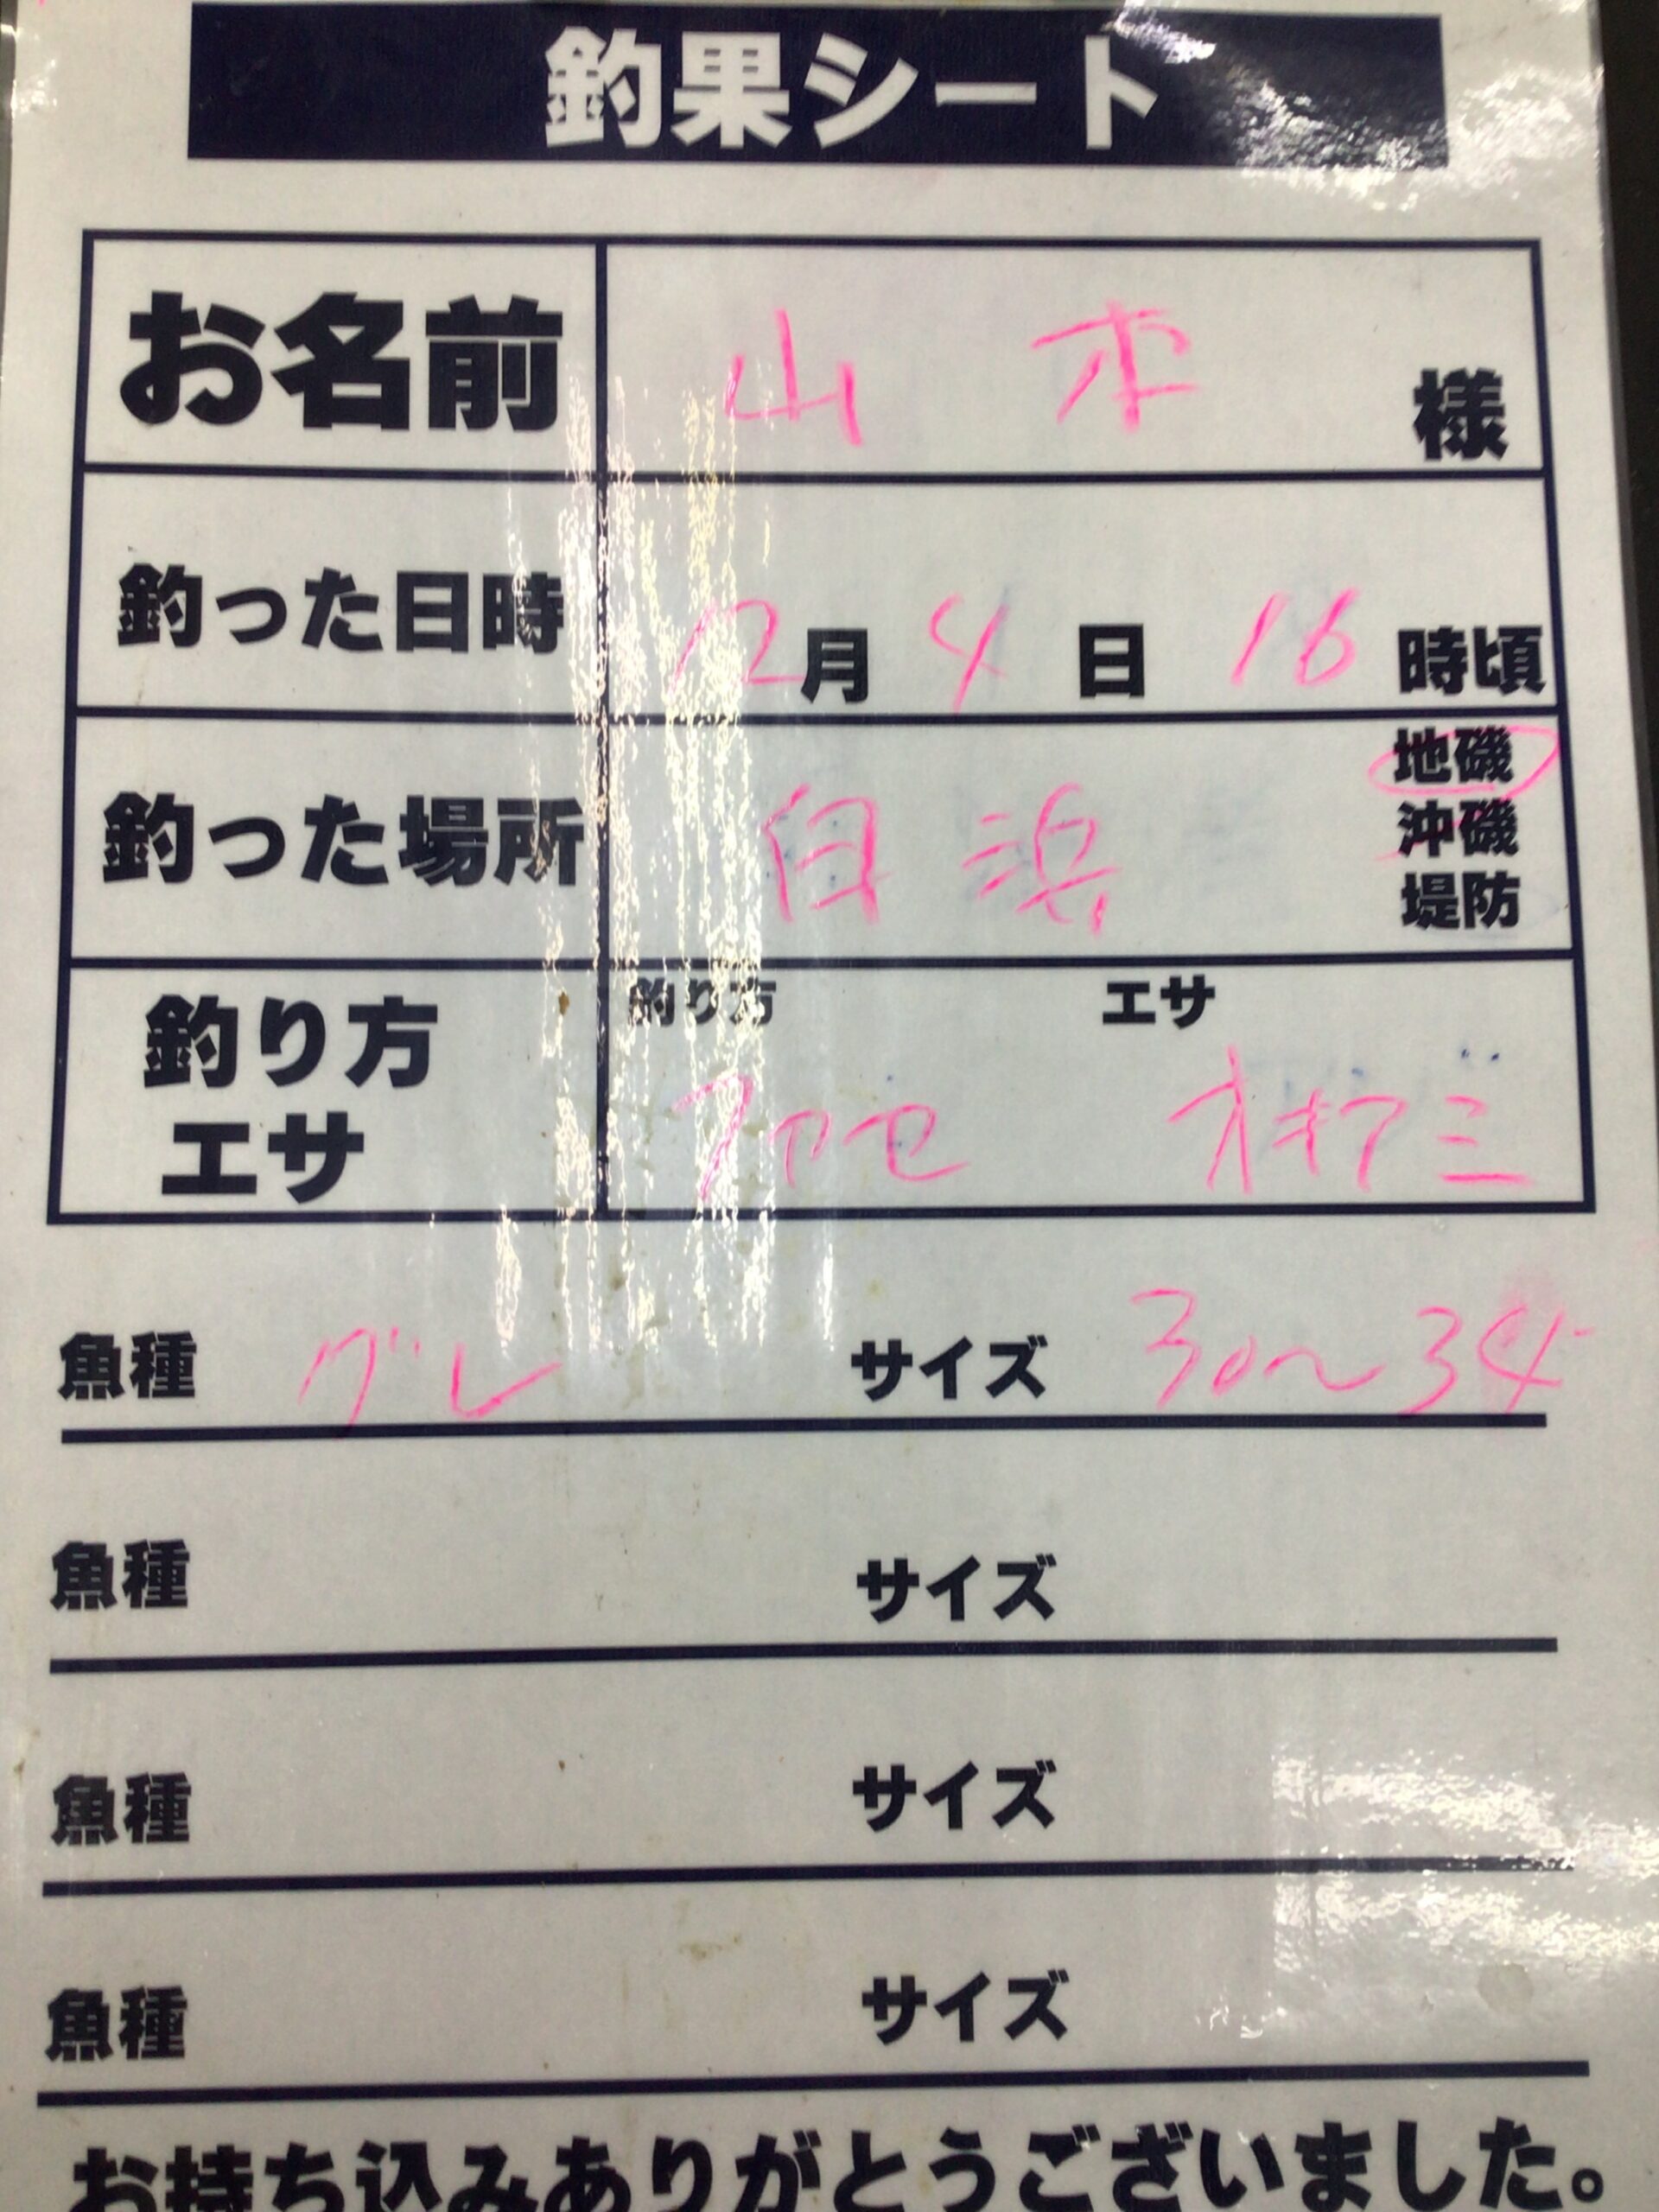 釣果シート
お名前 山本 様
釣った日時 12月4日16時頃
釣った場所 白浜 地磯
沖磯
堤防
釣り方 エサ
釣り方
エサ フカセ オキアミ
魚種 グレ サイズ 30〜34
魚種 サイズ
魚種 サイズ
魚種 サイズ
お持ち込みありがとうございました。